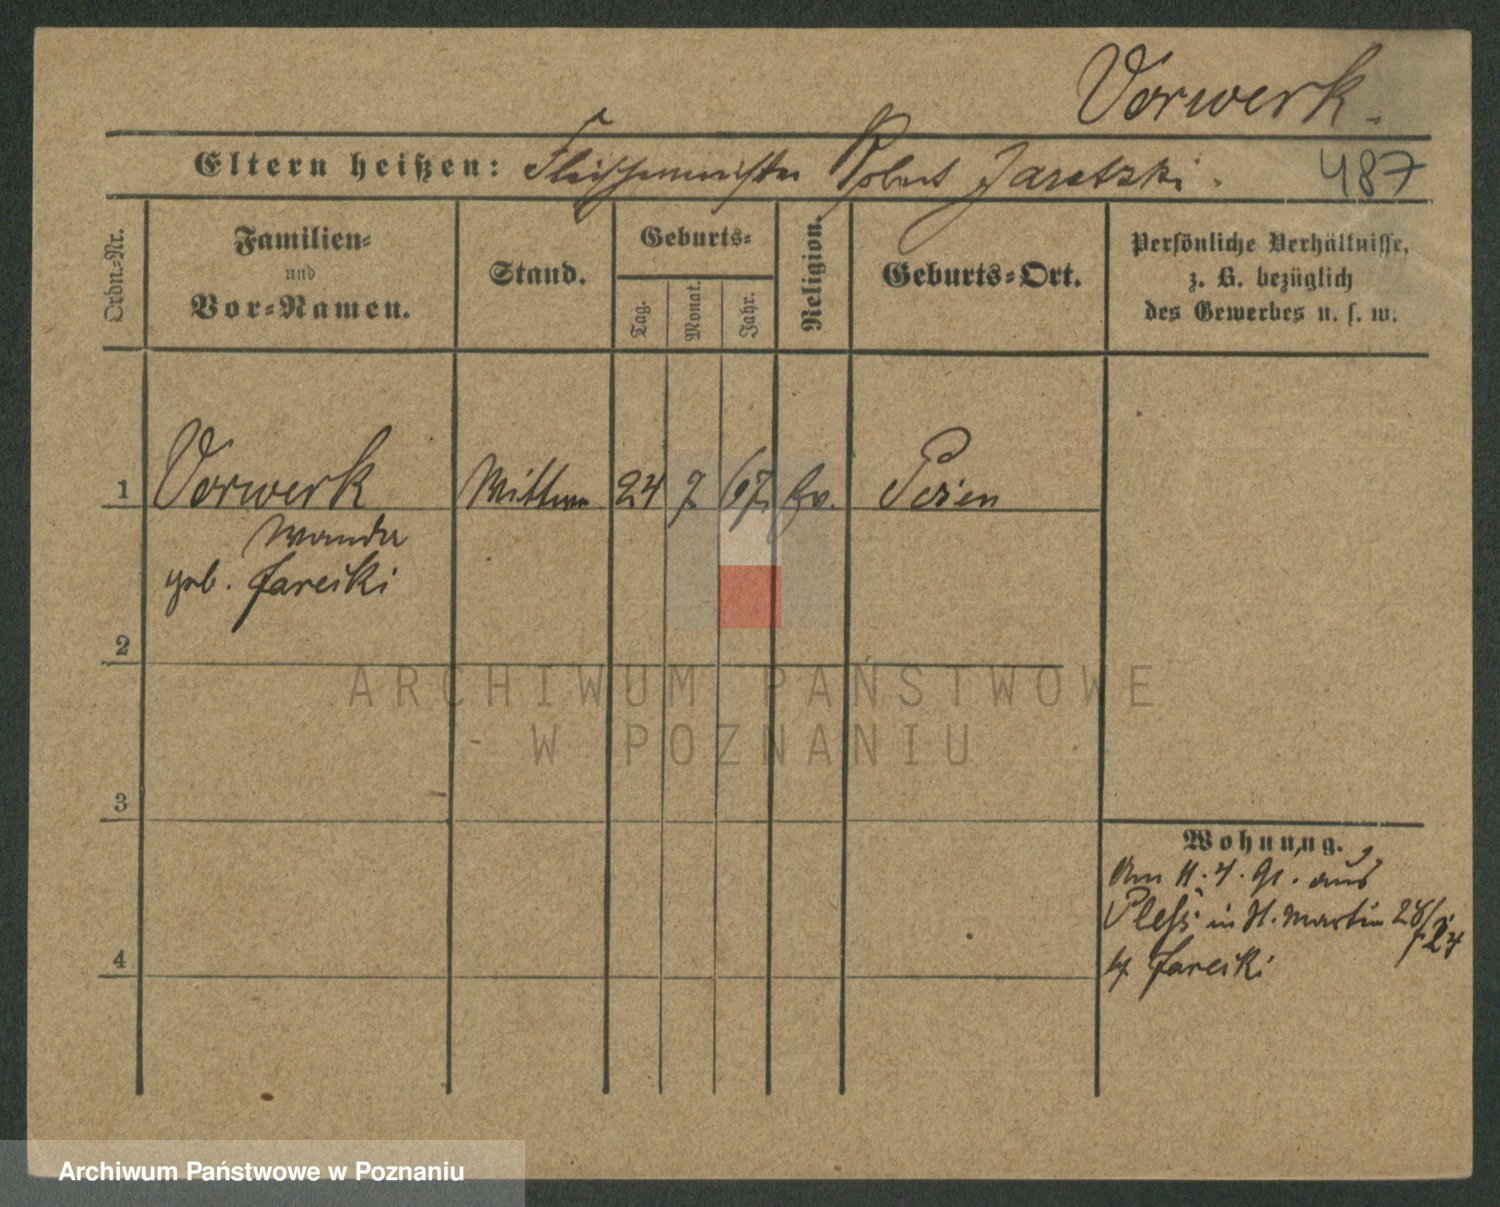 Vorwerk.
Eltern heißen: Fleischermeister Robert Jaretzki.
487
Ordn.-Nr.
Familien-
und
Vor-Namen.
Stand.
Geburts-
Tag.
Monat.
Jahr.
Religion.
Geburts-Ort.
Persönliche Verhältnisse,
z. B. bezüglich
des Gewerbes u. s. w.
1 Vorwerk Wittwe 24 7 67 Ev. Posen
Wanda
geb. Jarecki
2
ARCHIWUM PAŃSTWOWE
W POZNANIU
3
Wohnung.
Am 11.4.91. aus
Pleß in St. Martin 28/
24
4
Jarecki
Archiwum Państwowe w Poznaniu